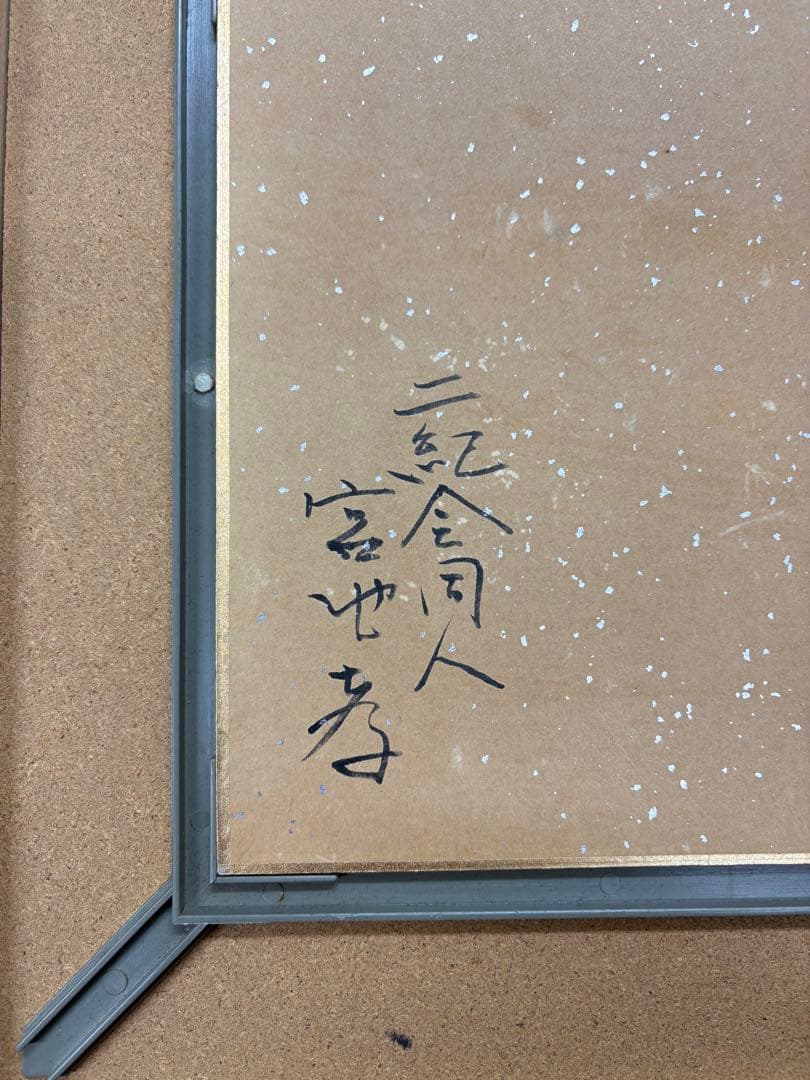 二紀会同人
宮地孝